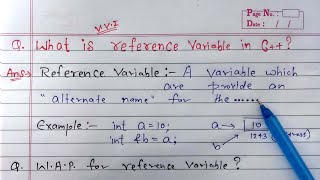 Page No. :
Date : / /
V.V.I
Q. What is reference variable in C++?
Ans→ Reference Variable :- A variable which
are provide an
"alternate name" for the ......
Example :- int a=10; a → 10
int &b = a; b
Q. W.A.P. for reference variable ?